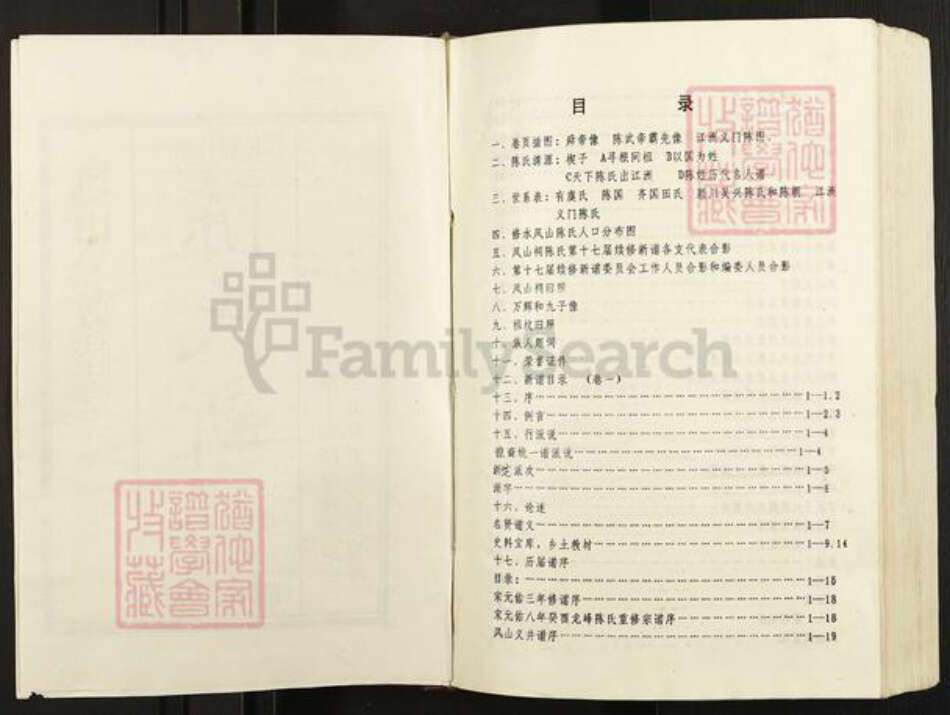 目 录
一、卷页插图：舜帝像 陈武帝霸先像 江洲义门陈图、
二、陈氏溯源：楔子 A寻根问祖 B以国为姓
C天下陈氏出江洲 D陈姓历代名人谱
三、世系表：有虞氏 陈国 齐国田氏 颍川吴兴陈氏和陈朝 江洲
义门陈氏
四、修水凤山陈氏人口分布图
五、凤山祠陈氏第十七届续修新谱各支代表合影
六、第十七届续修新谱委员会工作人员合影和编委人员合影
七、凤山祠旧照
八、万辉和九子像
九、祖坟旧照
十、族人题词
十一、荣誉证件
十二、新谱目录 （卷一）
十三、序 1—1.2
十四、例言 1—2.3
十五、行派说 1—4
统一谱派说 1—4
派次 1—5
派字 1—6
十六、论述
名贤谱义 1—7
史料宝库，乡土教材 1—9.14
十七、历届谱序
目录： 1—15
宋元佑三年修谱序 1—18
宋元佑八年癸酉龙峰陈氏重修宗谱序 1—18
凤山义井谱序 1—19
FamilySearch
犹他家
谱学会
收藏
犹他家
谱学会
收藏